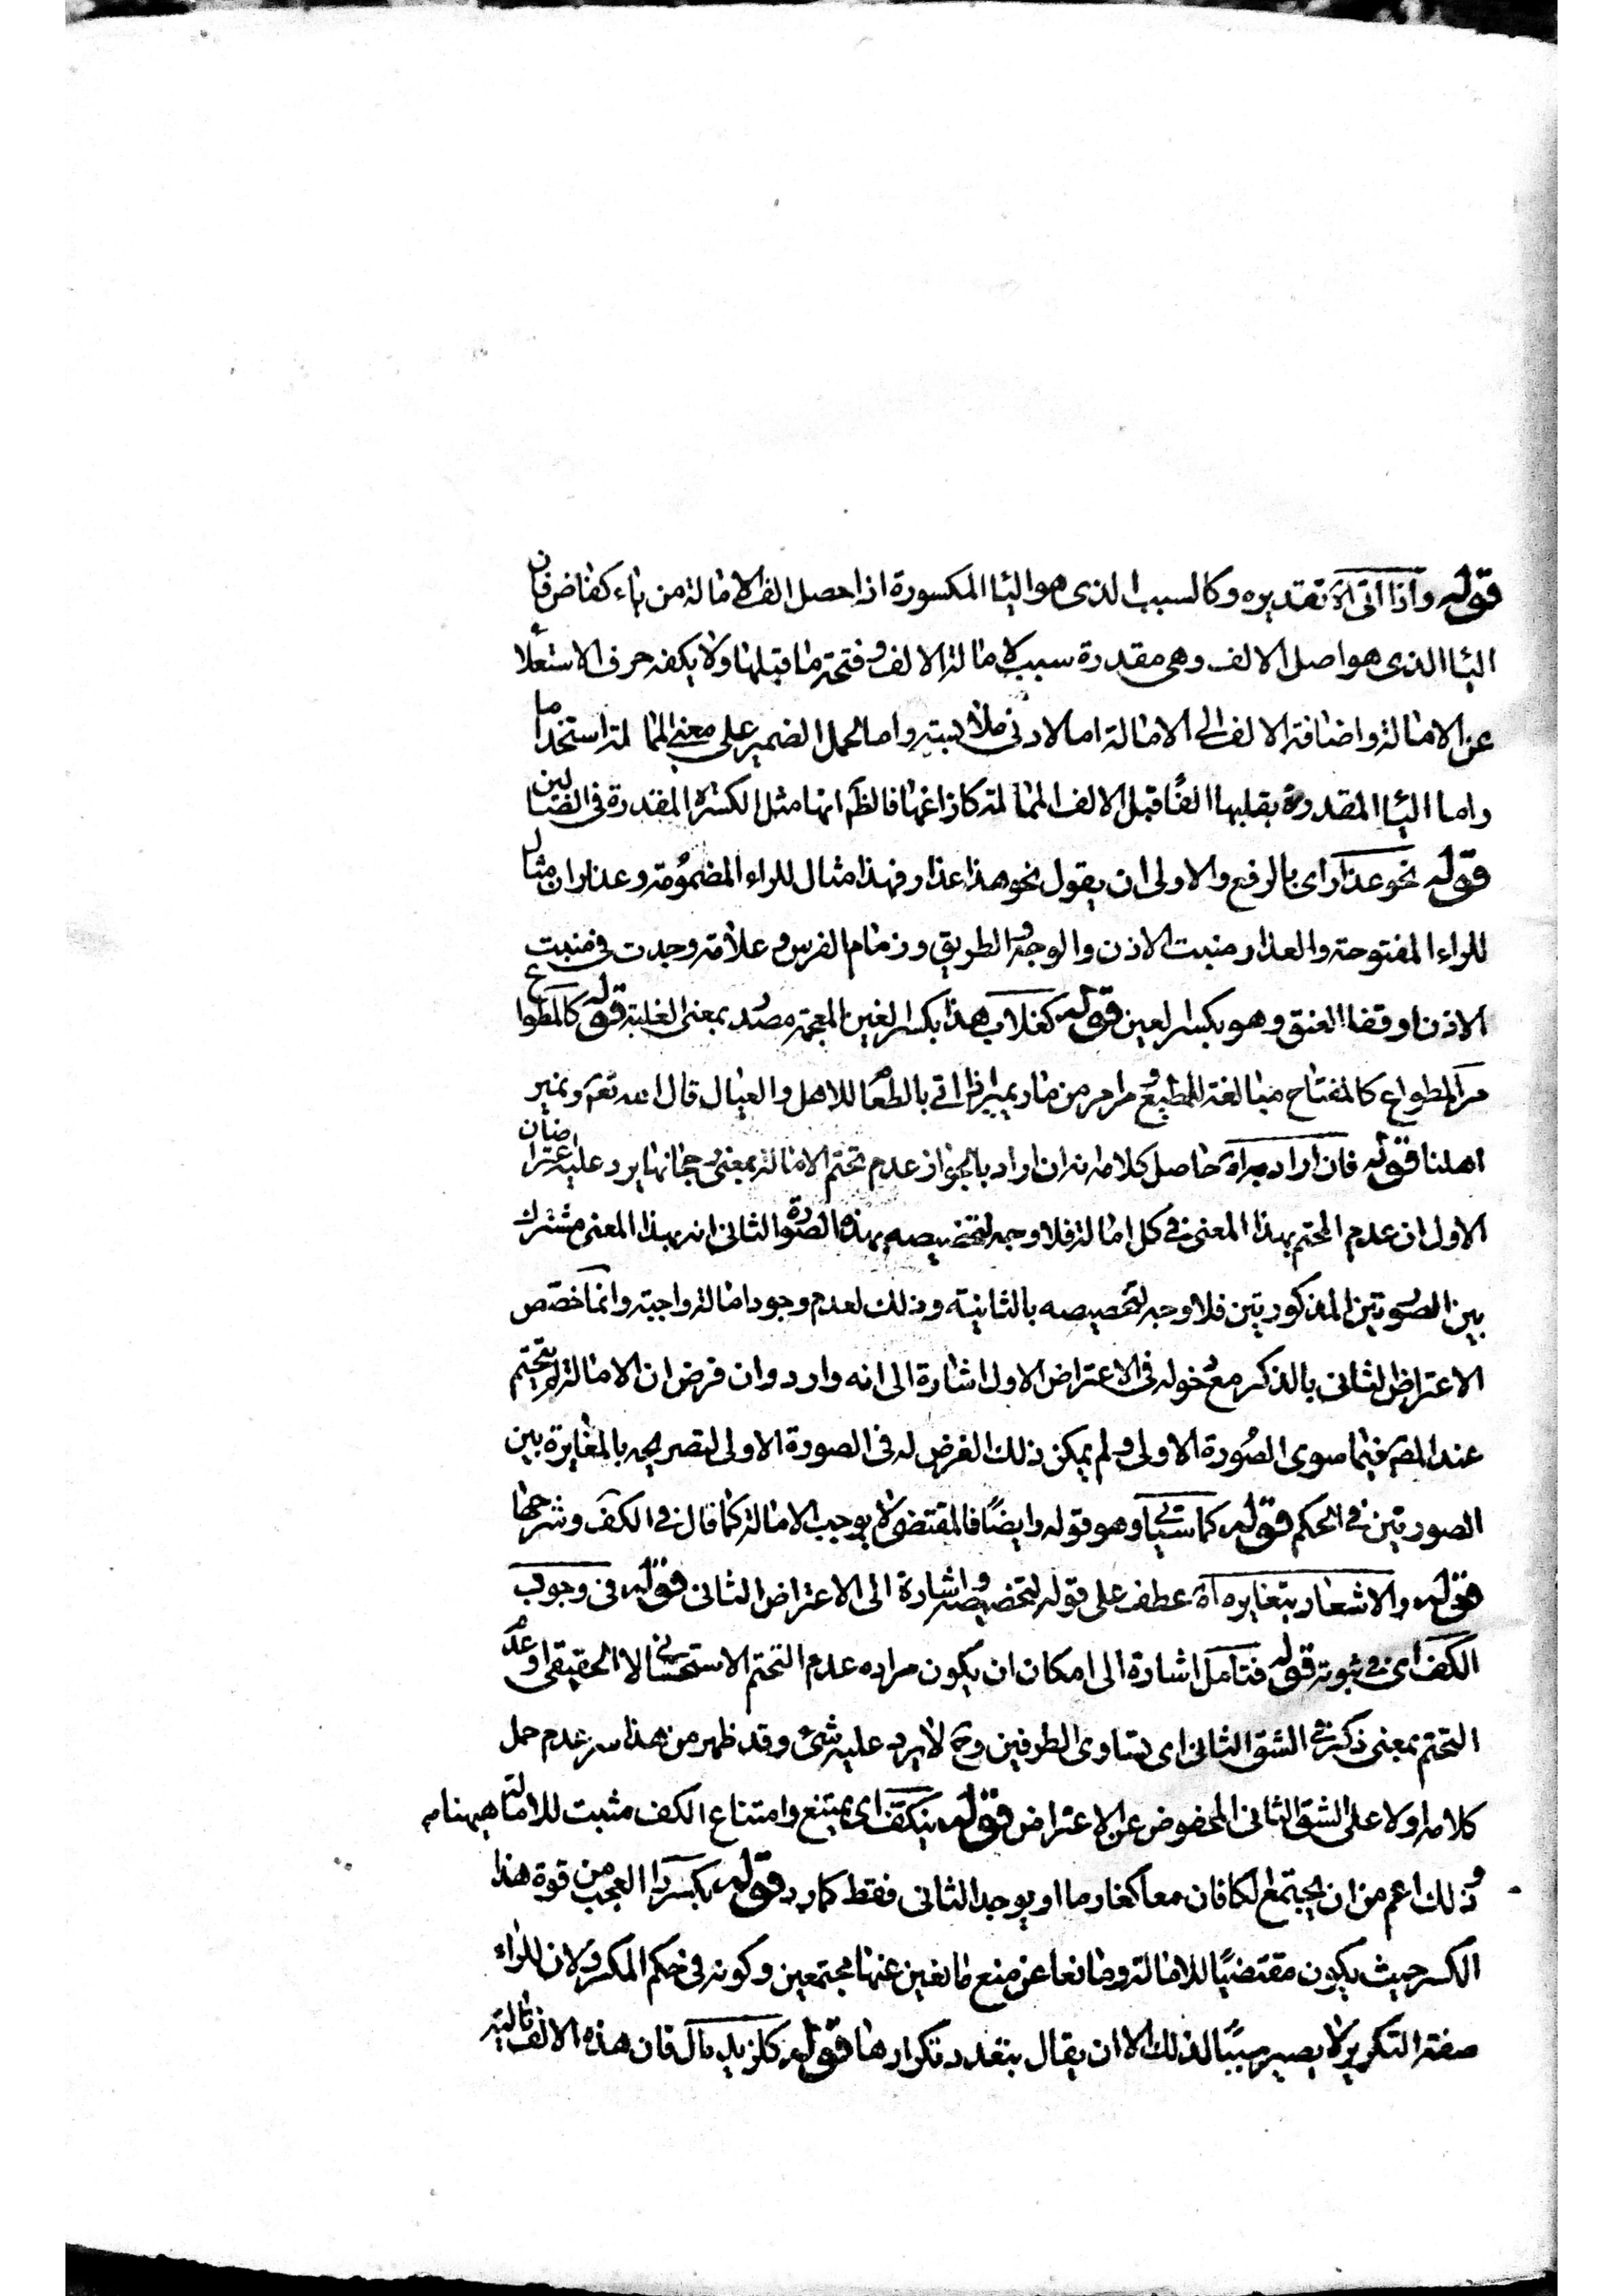 قوله واذا اتى آه تقديره وكالسبب الذى هو اليا المكسورة اذا حصل الف الامالة من ياء كفاض فان
اليا الذى هو اصل الالف وهى مقدرة سبب لامالة الالف وفتحة ما قبلها ولا يكفه حرف الاستعلاء
عن الامالة واضافة الالف الى الامالة اما لادنى ملابسة واما لحمل الضمير على معنى الممالة استخداما
واما اليا المقدرة بقلبها الفًا قبل الالف الممالة كزاغها فالظ انها مثل الكسرة المقدرة فى الضالين
قوله نحو عذار اى بالرفع والاولى ان يقول نحو هذا عذار فهذا مثال للراء المضمومة وعذاران مثال
للراء المفتوحة والعذار منبت الاذن والوجه والطريق وزمام الفرس وعلامة وجدت فى منبت
الاذن او قفا العنق وهو بكسر العين قوله كغلاب هذا بكسر الغين المعجمة مصدر بمعنى الغلبة قوله كالمطواع
مر المطواع كالمفتاح مبالغة المطيع ومر امر من مار يمير اذا اتى بالطعام للاهل والعيال قال الله تعم ونمير
اهلنا قوله فان اراد به آه حاصل كلامه انه ان اراد بالجواز عدم تحتم الامالة بمعنى رجحانها يرد عليه اعتراضان
الاول ان عدم التحتم بهذا المعنى فى كل امالة فلا وجه لتخصيصه بهذه الصورة والثانى انه بهذا المعنى مشترك
بين الصورتين المذكورتين فلا وجه لتخصيصه بالثانية وذلك لعدم وجود امالة واجبة وانما خصص
الاعتراض الثانى بالذكر مع دخوله فى الاعتراض الاول اشارة الى انه وارد وان فرض ان الامالة لم يتحتم
عند المص فيما سوى الصورة الاولى ولم يمكن ذلك الفرض له فى الصورة الاولى لتصريحه بالمغايرة بين
الصورتين فى الحكم قوله كما سياتى وهو قوله وايضًا فالمقتضى لا يوجب الامالة كما قال فى الكف وشرحها
قوله والاشعار بتغايره آه عطف على قوله لتخصيصه واشارة الى الاعتراض الثانى قوله فى وجوب
الكف اى فى ثبوته قوله فتامل اشارة الى امكان ان يكون مراده عدم التحتم الاستحسانى لا الحقيقى او عدم
التحتم بمعنى ذكر فى الشق الثانى اى تساوى الطرفين وح لا يرد عليه شئ وقد ظهر من هذا سر عدم حمل
كلامه اولا على الشق الثانى المحفوض عن الاعتراض قوله ينكف اى يمتنع وامتناع الكف مثبت للامالة هيهنا مه
وذلك اعم من ان يجتمع الكافان معا كغارما او يوجد الثانى فقط كمارد قوله بكسر را العجب من قوة هذا
الكسر حيث يكون مقتضيًا للامالة ومانعا عن منع مانعين عنها مجتمعين وكونه فى حكم المكرر لان للراء
صفة التكرير لا يصير سببًا لذلك الا ان يقال بتعدد تكرارها قوله كلزيد مال فان هذه الالف تالية